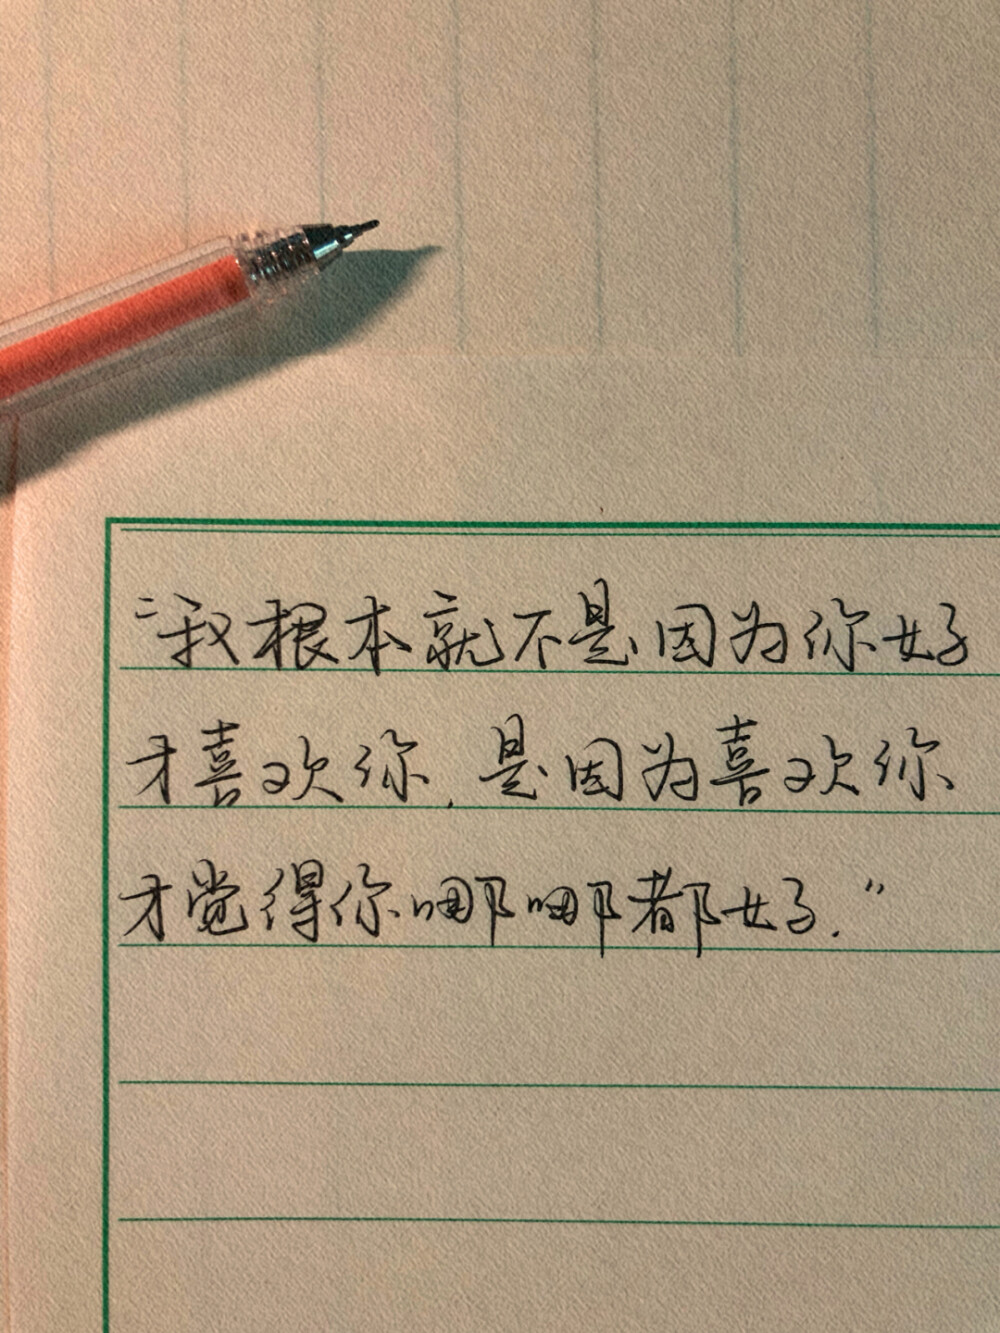 “我根本就不是因为你好
才喜欢你,是因为喜欢你
才觉得你哪哪都好.”